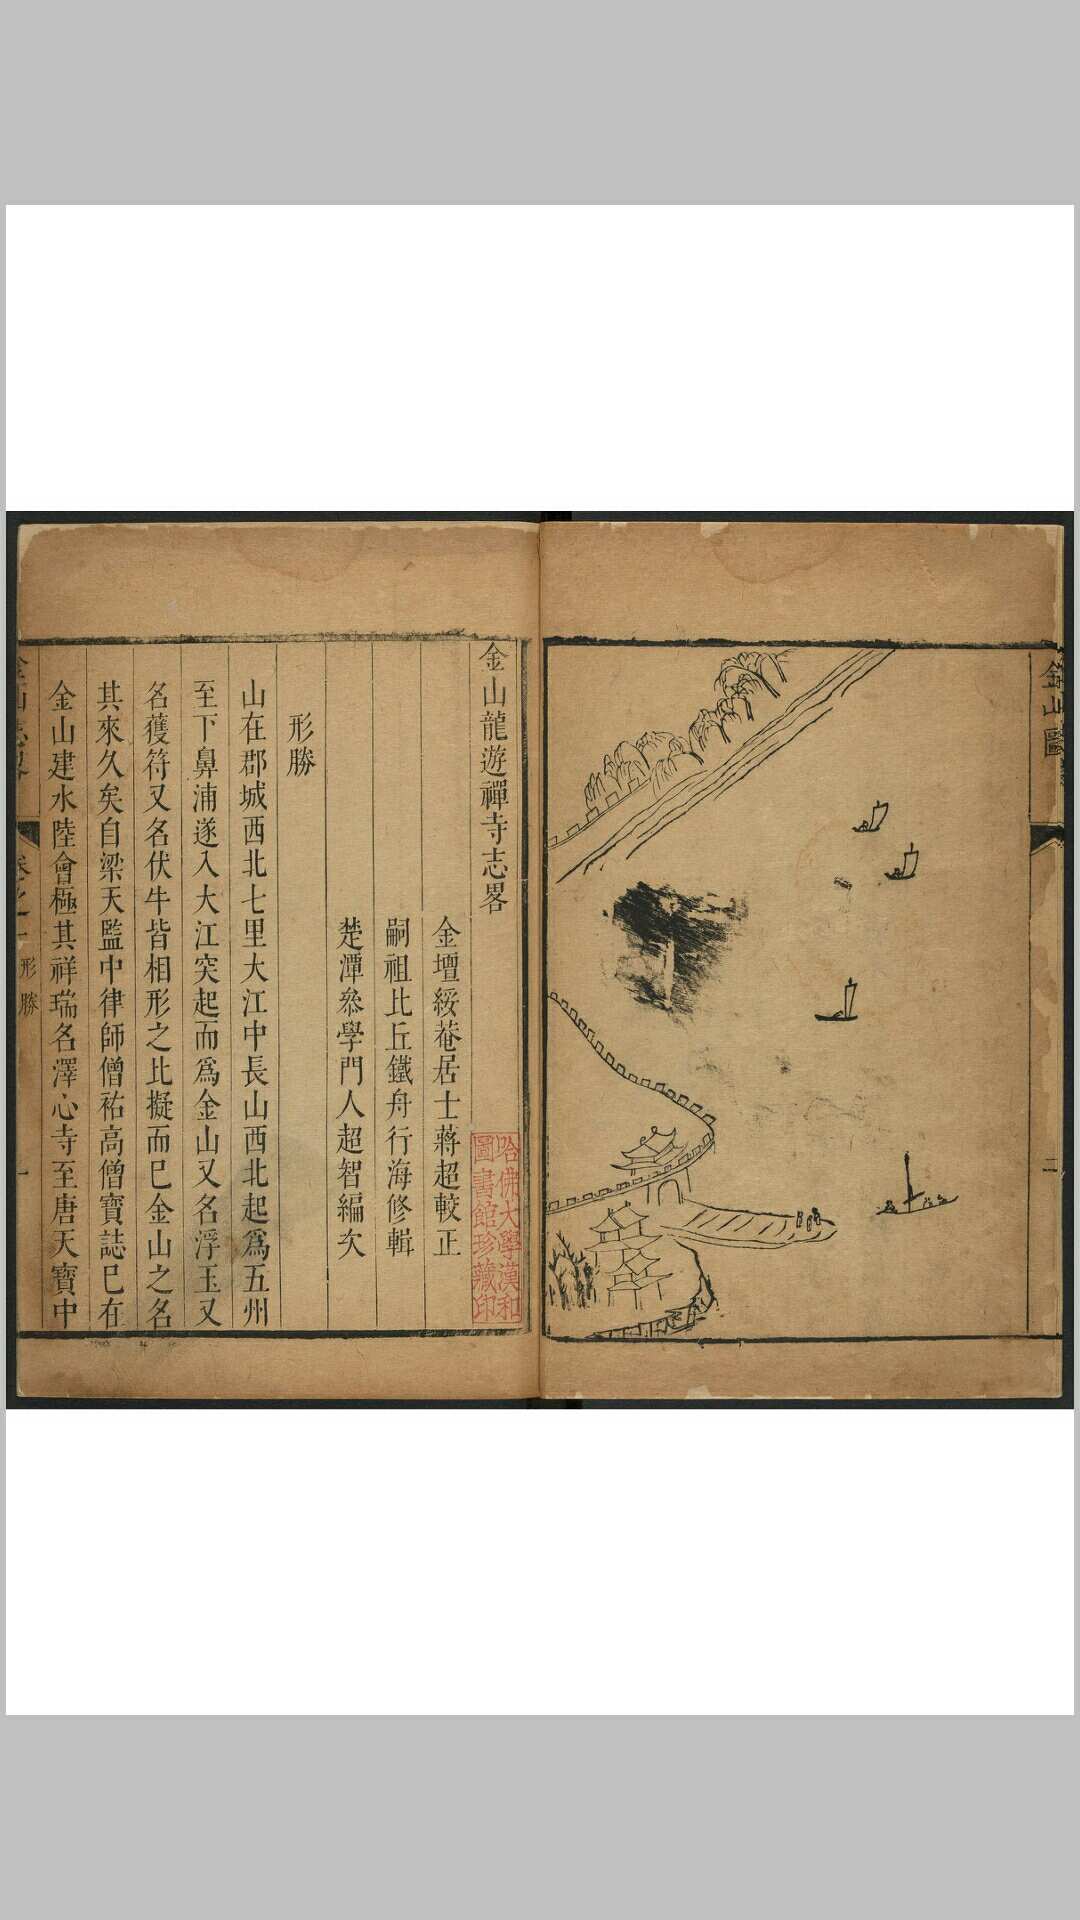 金山圖
二
金山龍遊禪寺志畧
金壇綏菴居士蔣超較正
嗣祖比丘鐵舟行海修輯
楚潭叅學門人超智編次
形勝
山在郡城西北七里大江中長山西北起爲五州
至下鼻浦遂入大江突起而爲金山又名浮玉又
名獲符又名伏牛皆相形之比擬而已金山之名
其來久矣自梁天監中律師僧祐高僧寶誌已在
金山建水陸會極其祥瑞名澤心寺至唐天寶中
金山志畧
卷之一
形勝
一
哈佛大學漢和
圖書館珍藏印